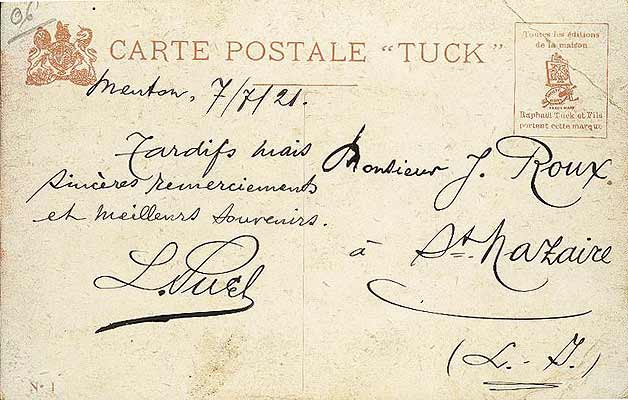 06'
CARTE POSTALE "TUCK"
Toutes les éditions
de la maison
Raphael Tuck et Fils
portent cette marque
Menton, 7/7/21.
Tardifs mais
sincères remerciements
et meilleurs souvenirs.
Monsieur J. Roux
à St. Nazaire
(L.-I.)
No 1